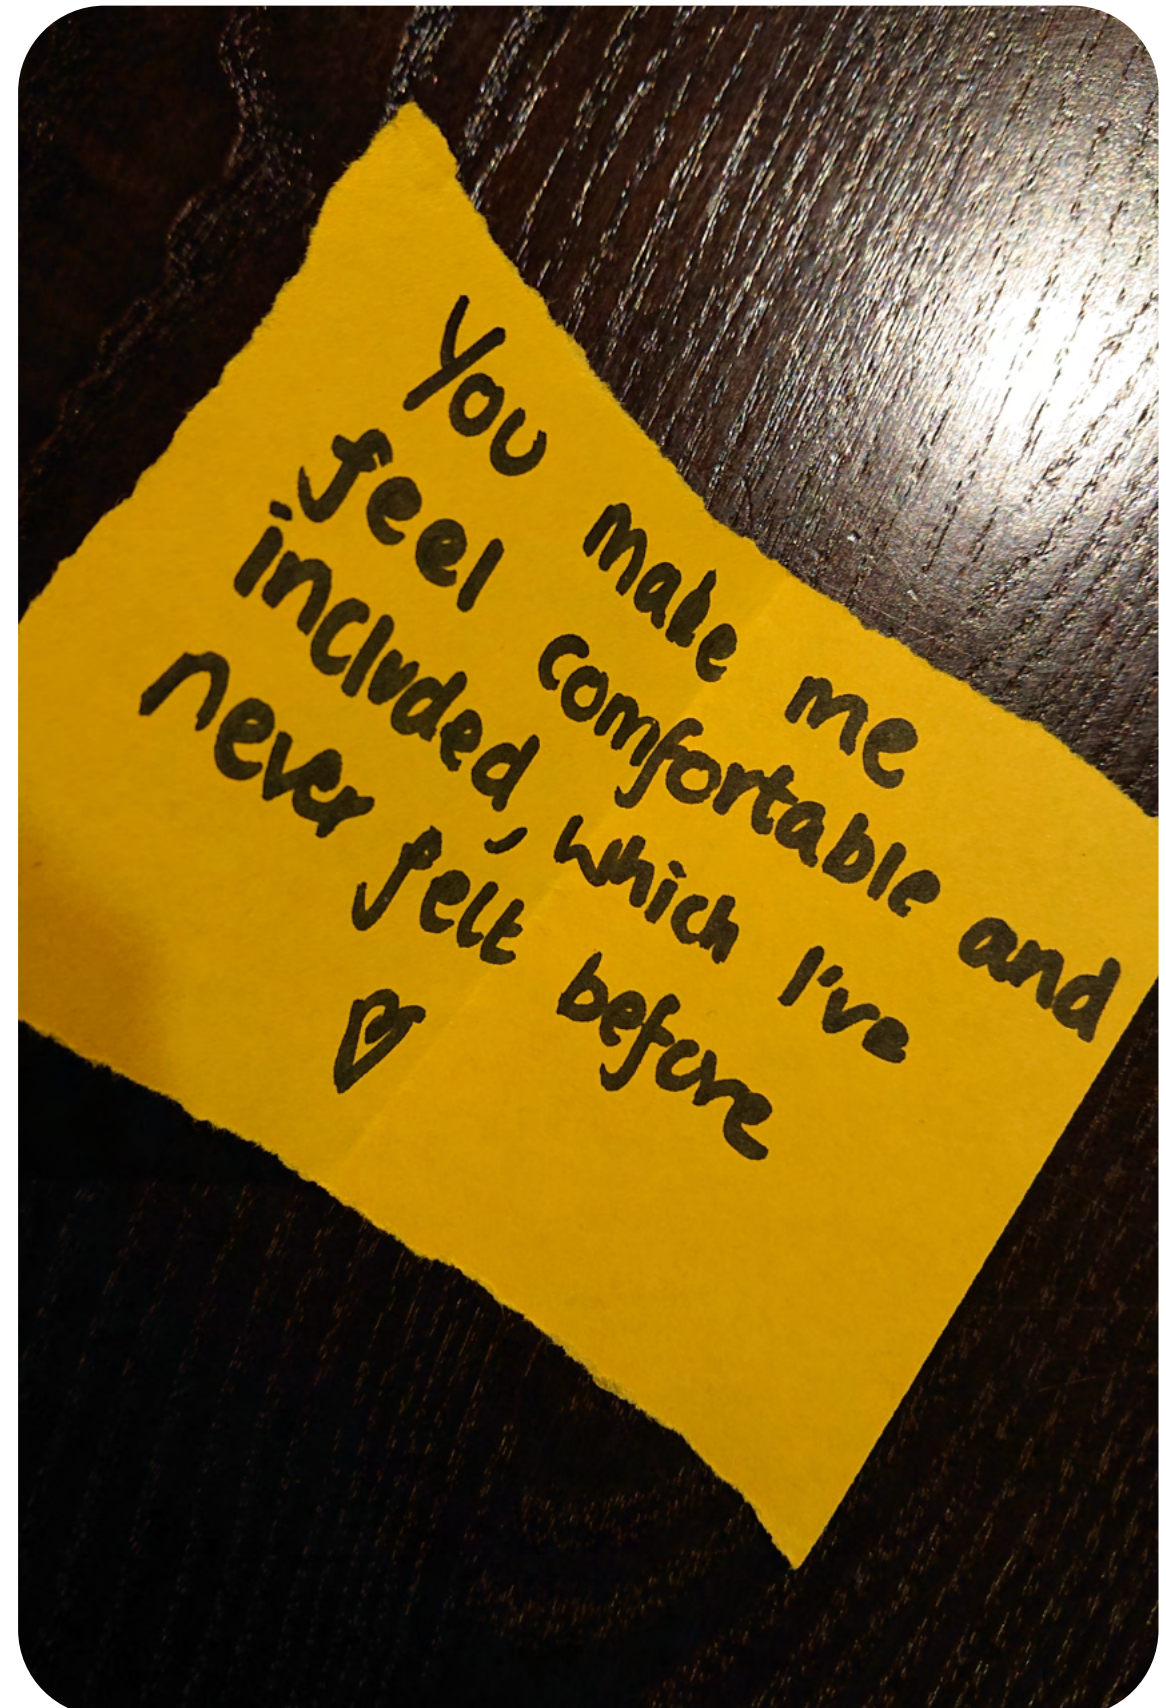 You make me
feel comfortable and
included, which I've
never felt before
♡